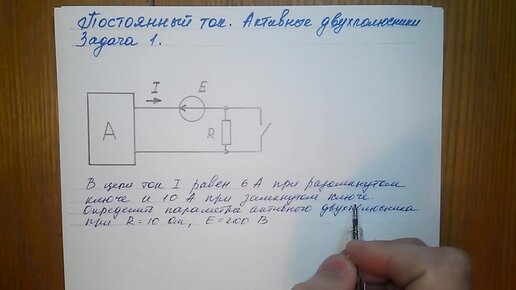 Постоянный ток. Активные двухполюсники
Задача 1.
I E
A
R
В цепи ток I равен 6 А при разомкнутом
ключе и 10 А при замкнутом ключе.
Определить параметры активного двухполюсника
при R = 10 Ом, E = 200 В.